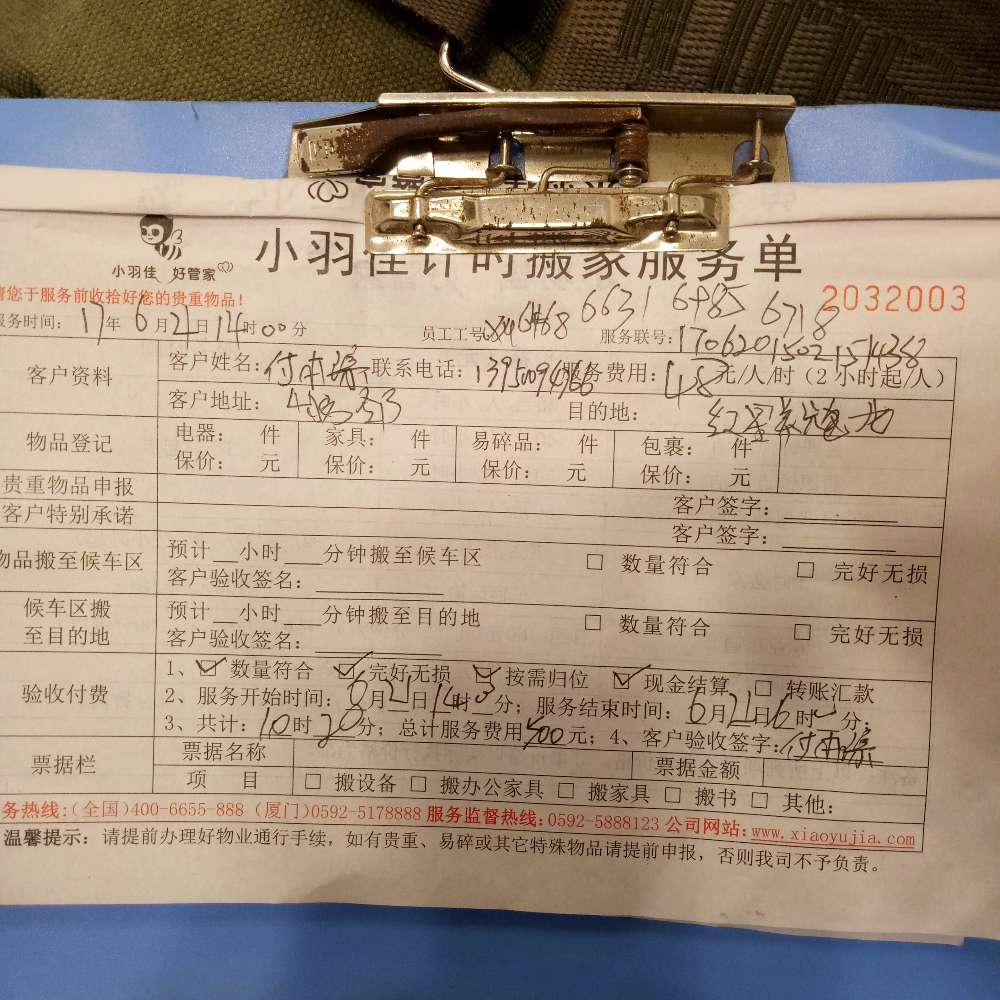 小羽佳 好管家
小羽佳计时搬家服务单
请您于服务前收拾好您的贵重物品!
2032003
6631 6985 6718
服务时间: 17年6月21日14时00分 员工工号: 6468 服务联号: 
客户资料 客户姓名: 付雨 联系电话: 服务费用: 元/人/时 (2小时起/人)
客户地址: 目的地: 红星美
物品登记 电器: 件 家具: 件 易碎品: 件 包裹: 件
保价: 元 保价: 元 保价: 元 保价: 元
贵重物品申报 客户签字:
客户特别承诺 客户签字:
物品搬至候车区 预计__小时___分钟搬至候车区 □ 数量符合 □ 完好无损
客户验收签名:
候车区搬至目的地 预计__小时___分钟搬至目的地 □ 数量符合 □ 完好无损
客户验收签名:
验收付费 1、☑ 数量符合 ☑ 完好无损 ☑ 按需归位 ☑ 现金结算 □ 转账汇款
2、服务开始时间: 6月21日14时 分; 服务结束时间: 6月21日 时 分;
3、共计: 10时20分; 总计服务费用500元; 4、客户验收签字: 付雨
票据栏 票据名称 票据金额
项 目 □ 搬设备 □ 搬办公家具 □ 搬家具 □ 搬书 □ 其他:
务热线:(全国)400-6655-888 (厦门)0592-5178888 服务监督热线:0592-5888123 公司网站:www.xiaoyujia.com
温馨提示: 请提前办理好物业通行手续, 如有贵重、易碎或其它特殊物品请提前申报, 否则我司不予负责。